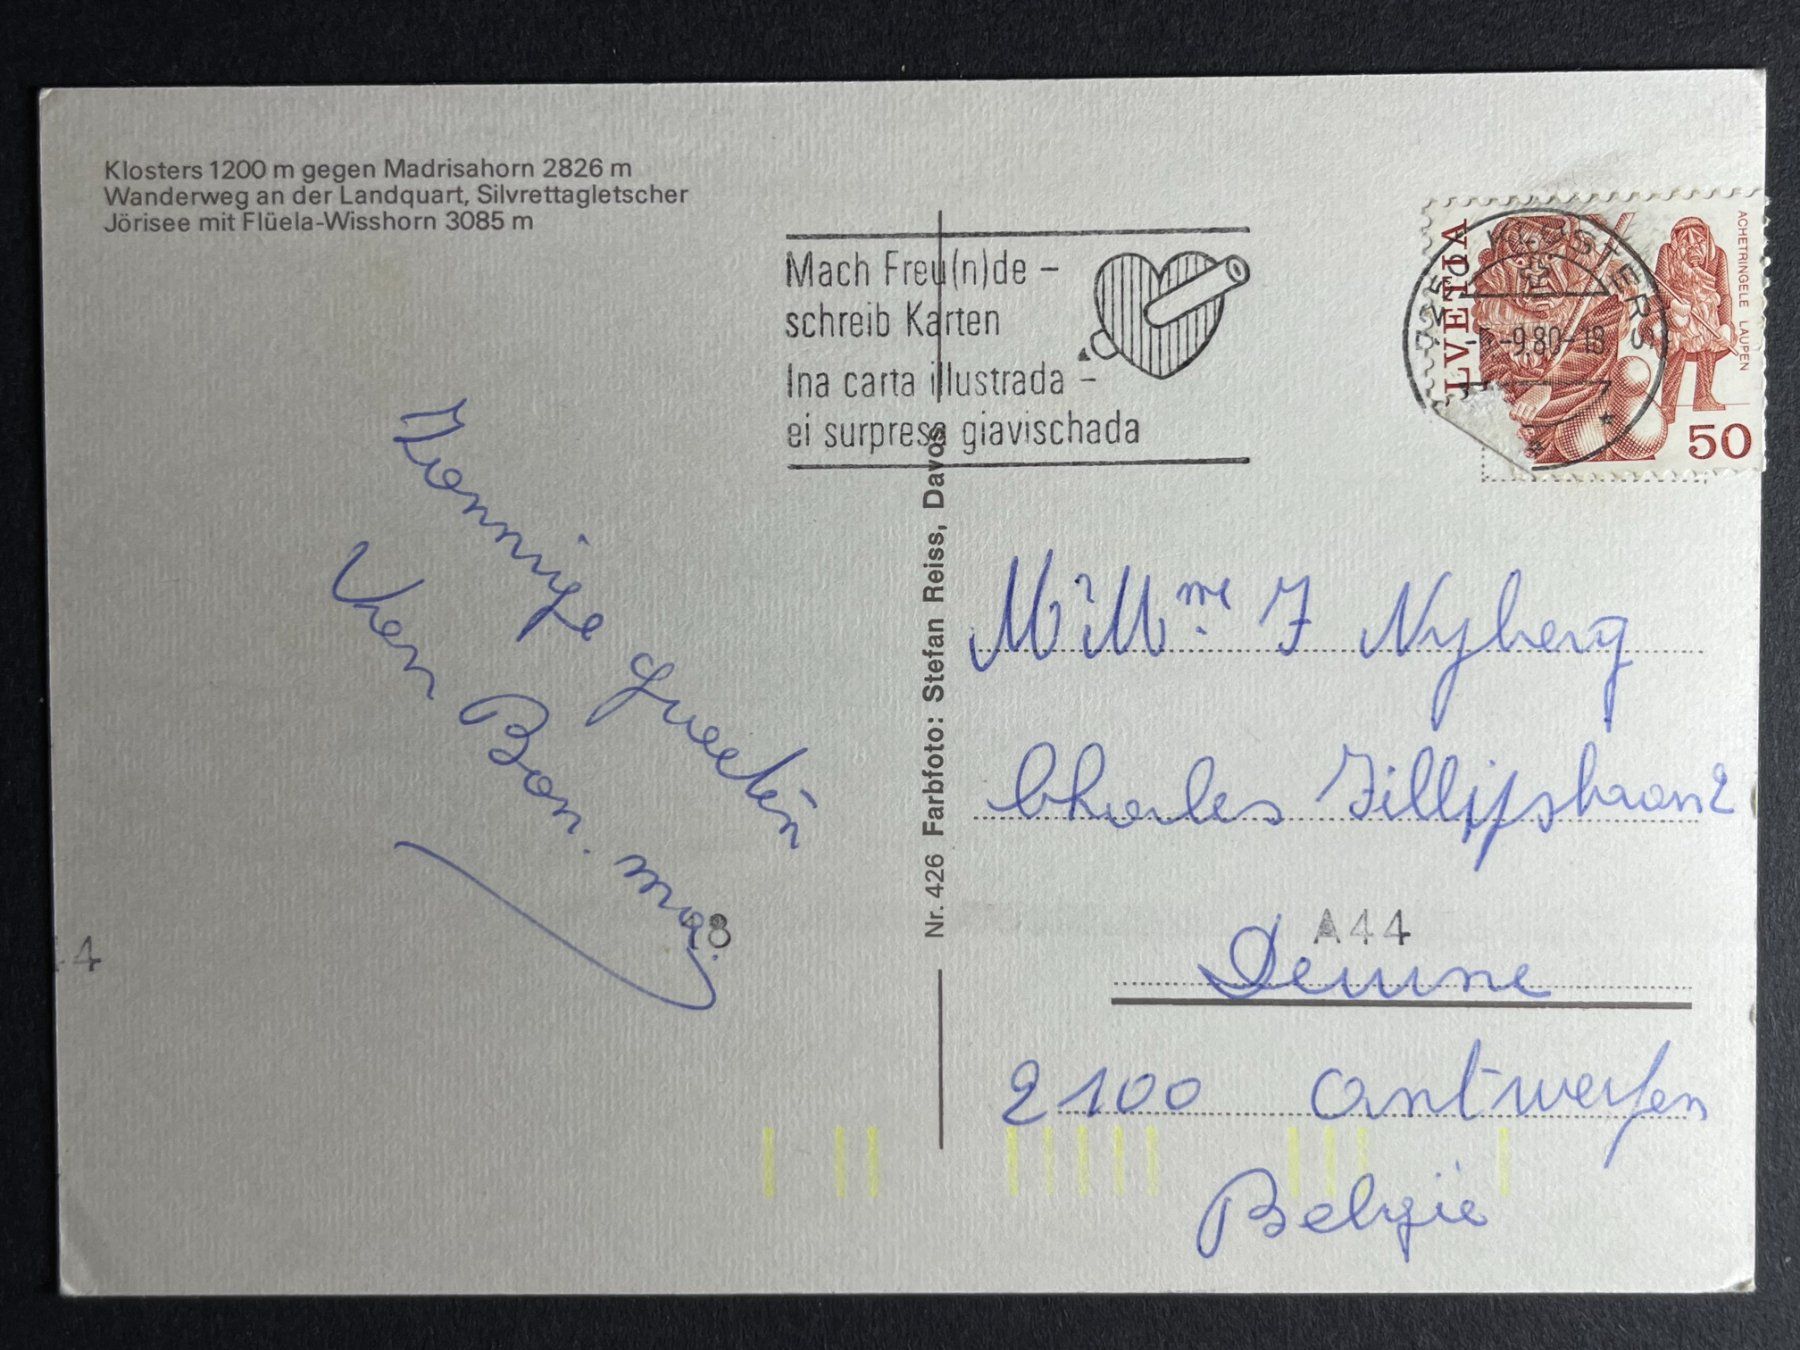 Klosters 1200 m gegen Madrisahorn 2826 m
Wanderweg an der Landquart, Silvrettagletscher
Jörisee mit Flüela-Wisshorn 3085 m
Mach Freu(n)de –
schreib Karten
Ina carta illustrada –
ei surpresa giavischada
KLOSTERS
-9.80-18
HELVETIA
ACHETRINGELE LAUPEN
50
Zonnige groeten
Van Bon. ma.
8
44
Nr. 426 Farbfoto: Stefan Reiss, Davos
Mr Mme J Nyberg
Charles
A44
Deurne
2100 Antwerpen
België